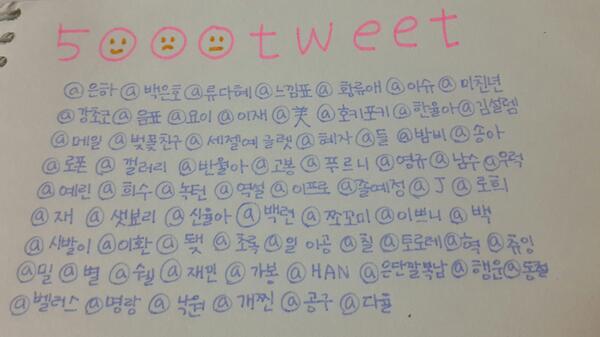 5000tweet
@은하 @백은호 @류다혜 @느낌표 @화류애 @이슈 @미친년
@강초코 @음표 @요이 @이재 @美 @호키포키 @한율아 @김설렘
@메일 @벚꽃친구 @세젤예 글렛 @혜자 @들 @밤비 @송아
@로폰 @컬러리 @반월아 @고봉 @푸르니 @영규 @남수 @우럭
@예린 @희수 @녹턴 @역설 @이프로 @졸예정 @J @로희
@재 @샛보리 @신율아 @백련 @쪼꼬미 @이쁘니 @백
@시발이 @이환 @됒 @초록 @일 아공 @칠 @토로레 @혁 @츄잉
@밀 @별 @수월 @재민 @가봉 @HAN @은단깔쌈남 @행운
@벨러스 @명랑 @낙원 @개찐 @공구 @다율